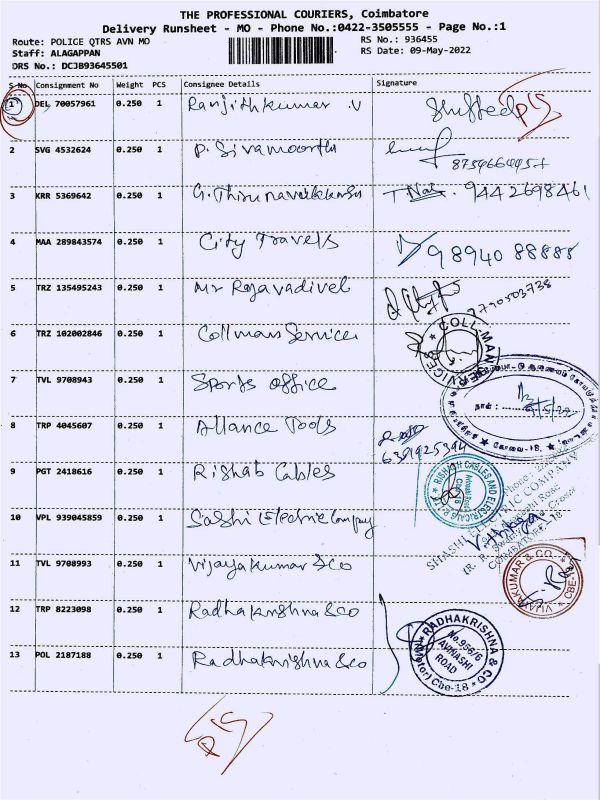 THE PROFESSIONAL COURIERS, Coimbatore
Delivery Runsheet - MO - Phone No.:0422-3505555 - Page No.:1
Route: POLICE QTRS AVN MO RS No.: 936455
Staff: ALAGAPPAN RS Date: 09-May-2022
DRS No.: DCJB93645501
S No Consignment No Weight PCS Consignee Details Signature
1 DEL 70057961 0.250 1 Ranjithkumar .V Shifted
2 SVG 4532624 0.250 1 P. Sivamoorthi
3 KRR 5369642 0.250 1 G. Thirunavukkarasu 9442698461
4 MAA 289843574 0.250 1 City Travels 98940 88888
5 TRZ 135495243 0.250 1 Mr Rajavadivel 7790503738
6 TRZ 102002846 0.250 1 Collman Services
COLL-MAN SERVICES
7 TVL 9708943 0.250 1 Sports office
நாள் :
8 TRP 4045607 0.250 1 Allance Tools 6391925394
9 PGT 2418616 0.250 1 Rishab Cables
RISHABH CABLES AND ELECTRICALS
10 VPL 939045859 0.250 1 Sashi Electric Company
SHASHI ELECTRIC COMPANY
COIMBATORE - 18
11 TVL 9708993 0.250 1 Vijayakumar & co
VIJAYAKUMAR & CO. CBE-18
12 TRP 8223098 0.250 1 Radhakrishna & co
13 POL 2187188 0.250 1 Radhakrishna & co
RADHAKRISHNA & CO
No.956/6
AVINASHI
ROAD
Cbe-18